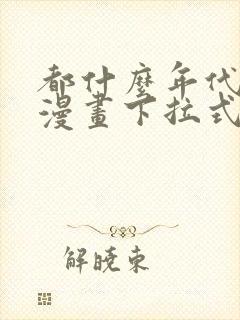 都什麼年代
漫畫下拉式
解曉東